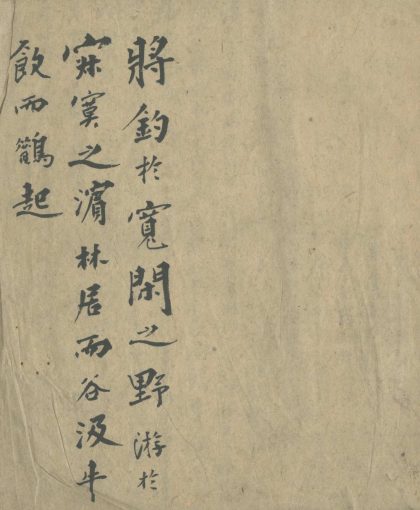 將釣於寬閑之野游於
寂寞之濱林居而谷汲牛
飲而鶴起